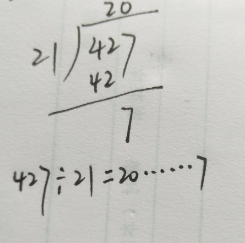 20
21)427
42
7
427÷21=20······7